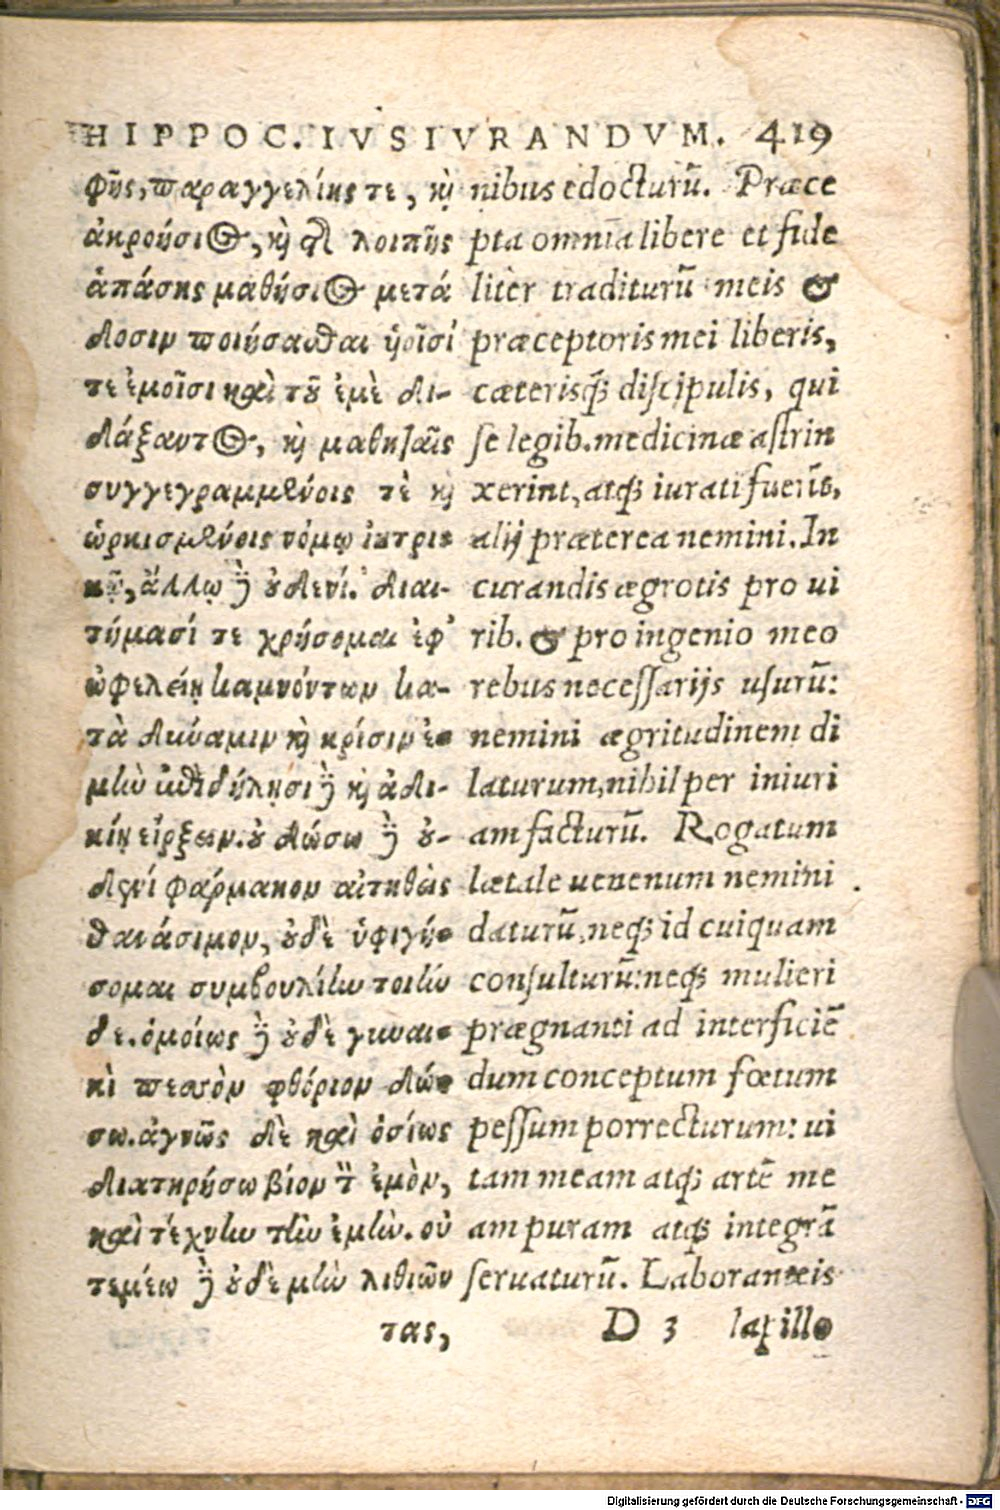 HIPPOC. IVSIVRANDVM. 419
φῆς, παραγγελίης τε, κỳ
ἀκροήσιος, κỳ τῆς λοιπῆς
ἁπάσης μαθήσιος μετά
δοσιν ποιήσασθαι ὑοῖσί
τε ἐμοῖσι καὶ τοῦ ἐμὲ δι-
δάξαντος, κỳ μαθηταῖς
συγγεγραμμένοις τὲ κỳ
ὡρκισμένοις νόμῳ ἰητρι-
κῷ, ἄλλῳ δὲ οὐδενί. διαι-
τήμασί τε χρήσομαι ἐφ'
ὠφελείῃ καμνόντων κα-
τὰ δύναμιν κỳ κρίσιν ἐ-
μὴν ἐπὶ δηλήσι δὲ κỳ ἀδι-
κίῃ εἴρξειν. οὐ δώσω δὲ οὐ-
δενί φάρμακον αἰτηθεὶς
θανάσιμον, οὐδὲ ὑφηγή-
σομαι συμβουλίην τοιήν
δε. ὁμοίως δὲ οὐδὲ γυναι-
κὶ πεσσὸν φθόριον δώ-
σω. ἁγνῶς δὲ καὶ ὁσίως
διατηρήσω βίον τὸν ἐμὸν,
καὶ τέχνην τὴν ἐμὴν. οὐ
τεμέω δὲ οὐδὲ μὴν λιθιῶν
τας,
nibus edocturũ. Præce
pta omnia libere et fide
liter traditurũ meis &
præceptoris mei liberis,
cæterisq; discipulis, qui
se legib. medicinæ astrin
xerint, atq; iurati fuerĩt,
alij præterea nemini. In
curandis ægrotis pro ui
rib. & pro ingenio meo
rebus necessarijs usurũ:
nemini ægritudinem di
laturum, nihil per iniuri
am facturũ. Rogatum
lætale uenenum nemini
daturũ, neq; id cuiquam
consulturũ: neq; mulieri
prægnanti ad interficiẽ
dum conceptum fœtum
pessum porrecturum: ui
tam meam atq; artẽ me
am puram atq; integrã
seruaturũ. Laboranteis
D 3 lapillo
Digitalisierung gefördert durch die Deutsche Forschungsgemeinschaft - DFG